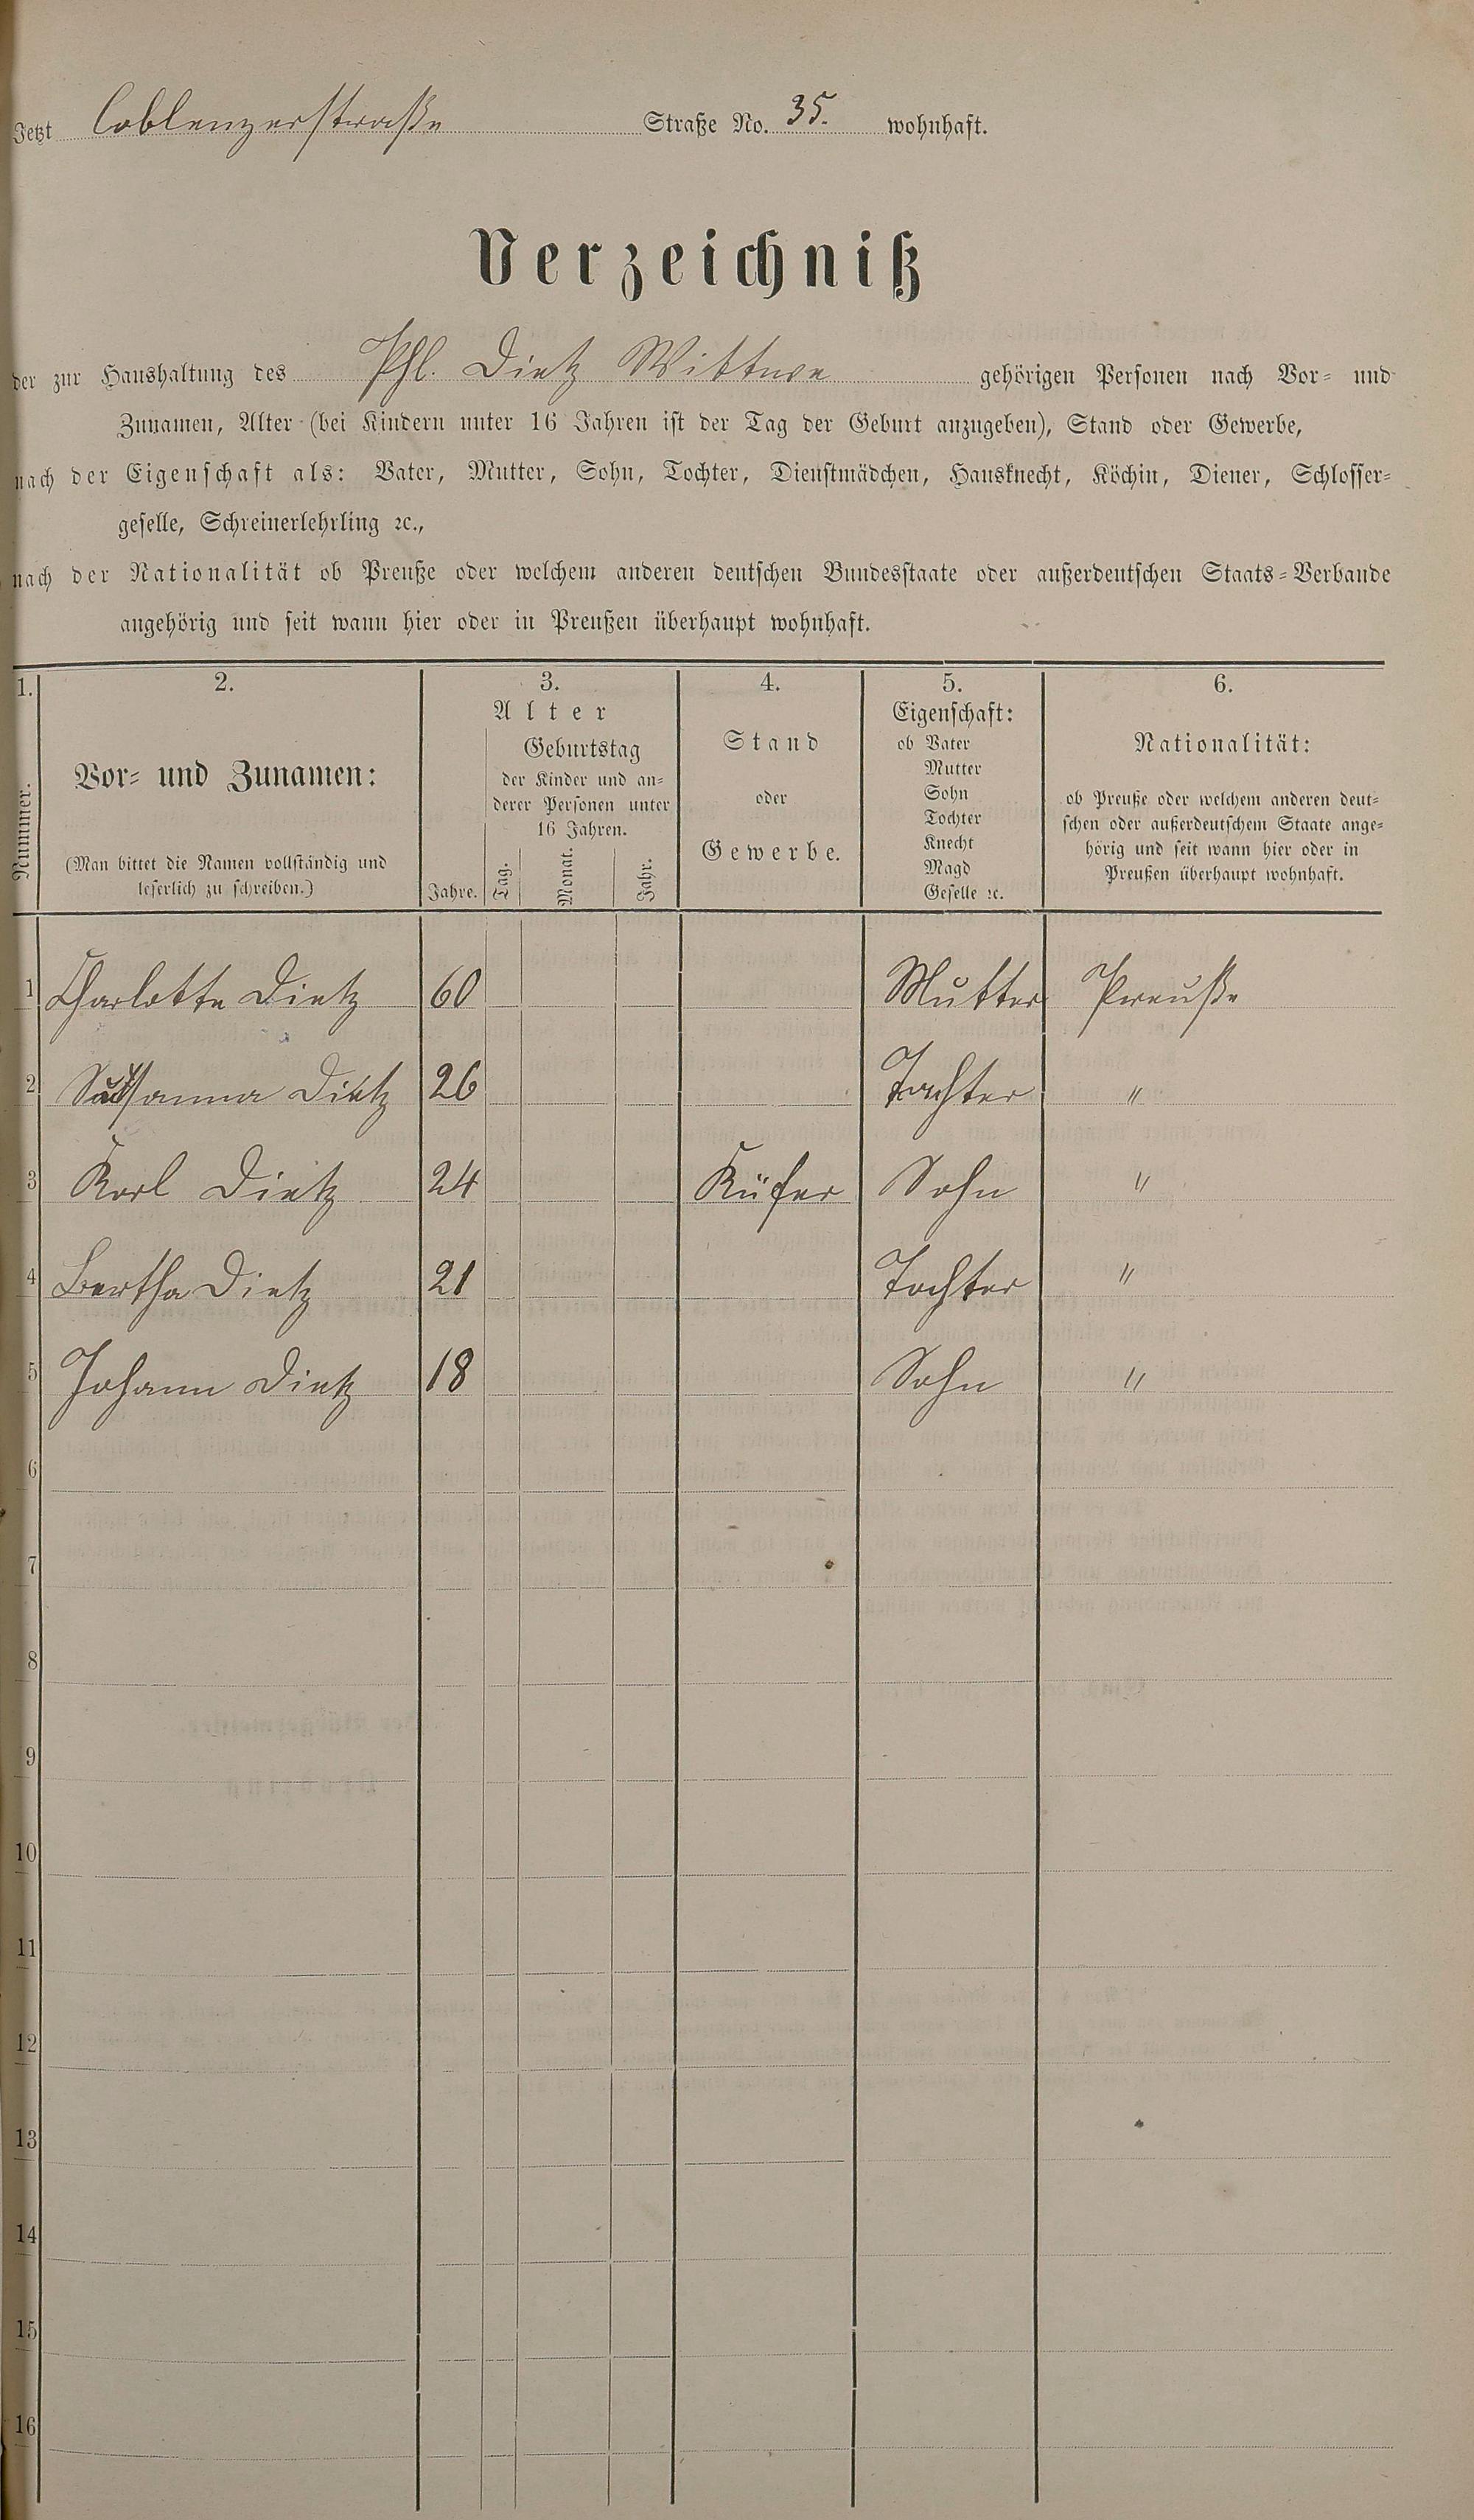 Jetzt Coblenzerstraße Straße No. 35. wohnhaft.
Verzeichniß
der zur Haushaltung des Phl. Dietz Wittwe gehörigen Personen nach Vor- und
Zunamen, Alter (bei Kindern unter 16 Jahren ist der Tag der Geburt anzugeben), Stand oder Gewerbe,
nach der Eigenschaft als: Vater, Mutter, Sohn, Tochter, Dienstmädchen, Hausknecht, Köchin, Diener, Schlosser-
geselle, Schreinerlehrling ꝛc.,
nach der Nationalität ob Preuße oder welchem anderen deutschen Bundesstaate oder außerdeutschen Staats-Verbande
angehörig und seit wann hier oder in Preußen überhaupt wohnhaft.
1.
Nummer.
2.
Vor- und Zunamen:
(Man bittet die Namen vollständig und
leserlich zu schreiben.)
3.
Alter
Jahre.
Geburtstag
der Kinder und an-
derer Personen unter
16 Jahren.
Tag.
Monat.
Jahr.
4.
Stand
oder
Gewerbe.
5.
Eigenschaft:
ob Vater
Mutter
Sohn
Tochter
Knecht
Magd
Geselle ꝛc.
6.
Nationalität:
ob Preuße oder welchem anderen deut-
schen oder außerdeutschem Staate ange-
hörig und seit wann hier oder in
Preußen überhaupt wohnhaft.
1 Charlotte Dietz 60 Mutter Preuße
2 Susanna Dietz 26 Tochter "
3 Karl Dietz 24 Küfer Sohn "
4 Bertha Dietz 21 Tochter "
5 Johann Dietz 18 Sohn "
6
7
8
9
10
11
12
13
14
15
16